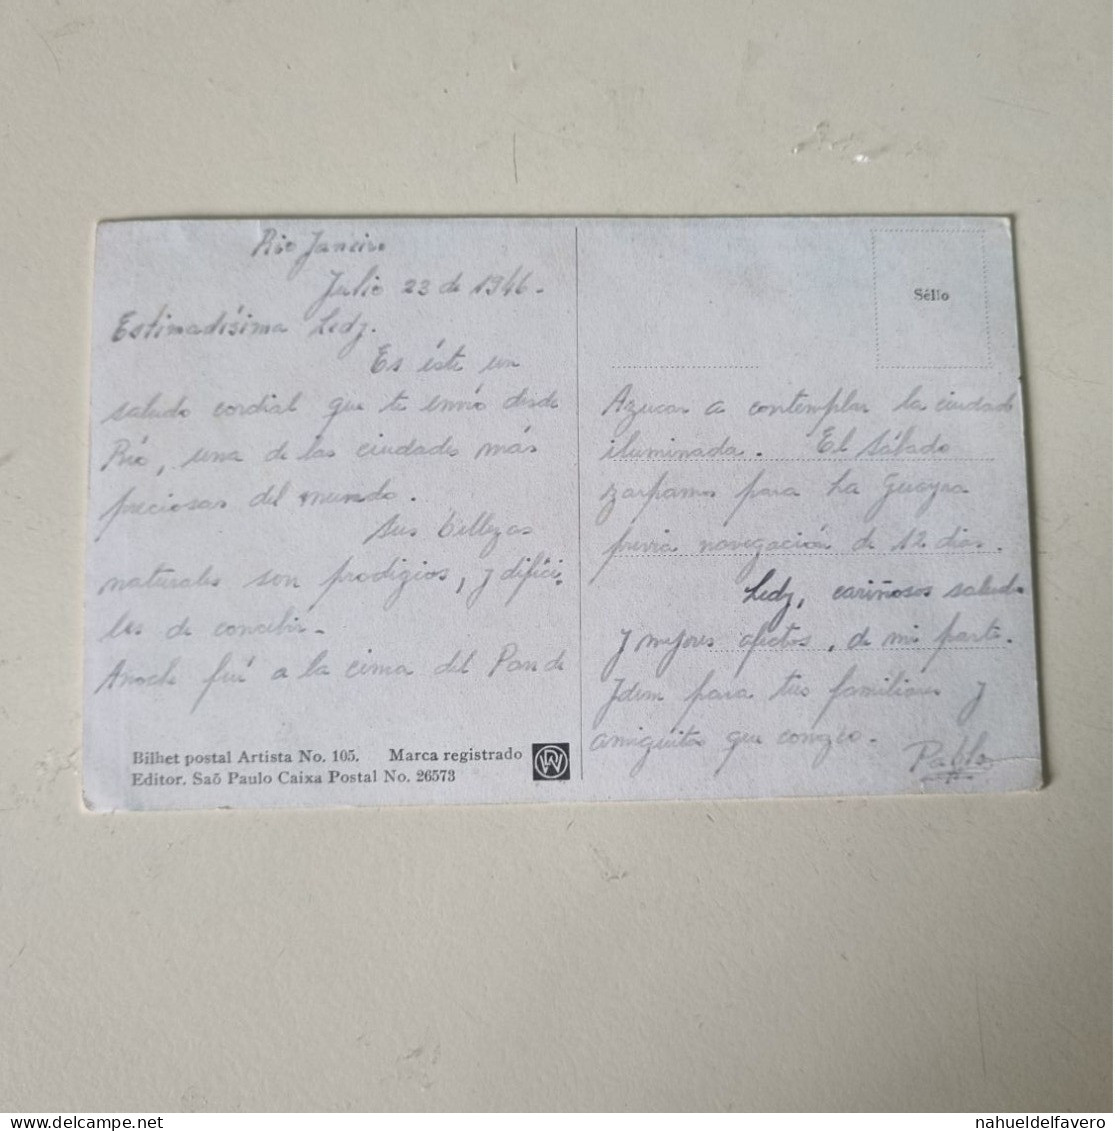 Rio Janeiro
Julio 23 de 1946.
Estimadísima Ledy.
Es éste un
saludo cordial que te envío desde
Río, una de las ciudades más
preciosas del mundo.
Sus bellezas
naturales son prodigios, y difíci-
les de concebir-
Anoche fuí a la cima del Pan de
Bilhet postal Artista No. 105. Marca registrado
Editor. Saõ Paulo Caixa Postal No. 26573
Séllo
Azucar a contemplar la ciudad
iluminada. El Sábado
zarpamos para La Guayra
previa navegación de 12 dias.
Ledy, cariñosos saludos
y mejores afectos, de mi parte.
Idem para tus familiares y
amigüitas que conozco.
Pablo
nahueldelfavero